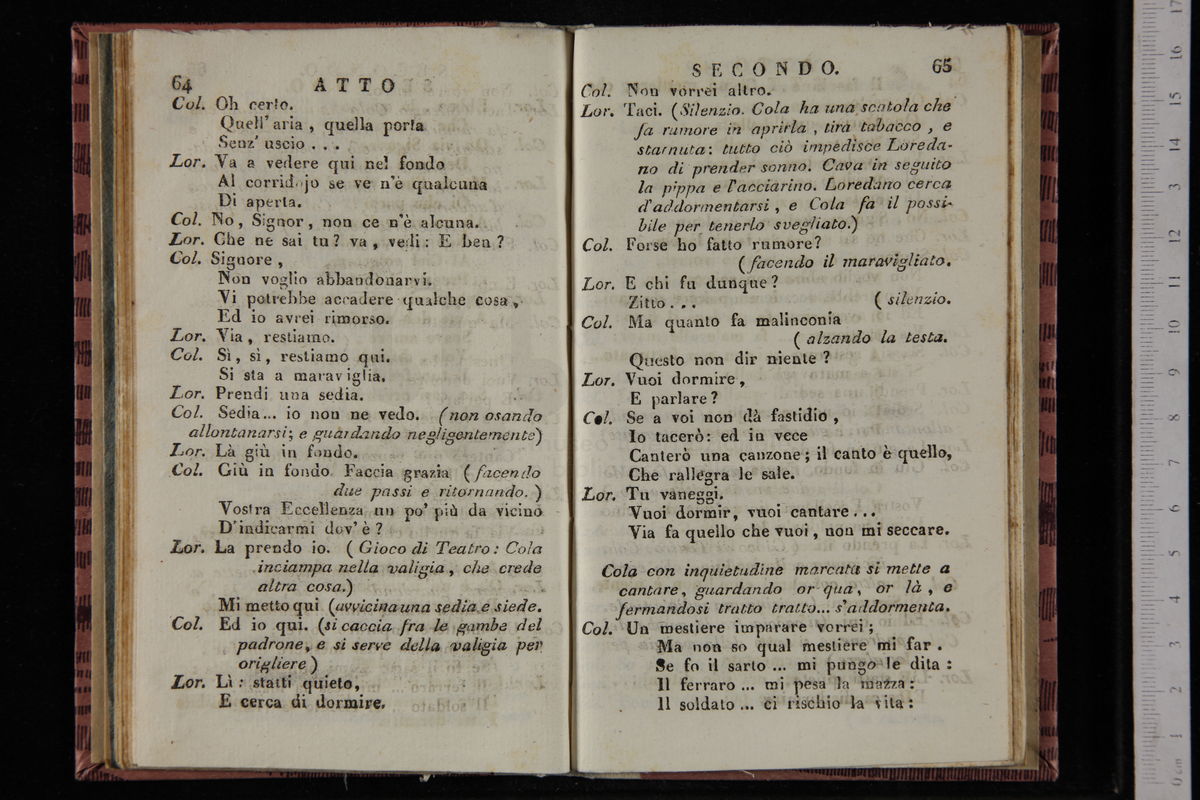 64 ATTO
Col. Oh certo.
Quell' aria , quella porta
Senz' uscio . . .
Lor. Va a vedere qui nel fondo
Al corridojo se ve n'è qualcuna
Di aperta.
Col. No, Signor, non ce n'è alcuna.
Lor. Che ne sai tu? va, vedi: E ben?
Col. Signore,
Non voglio abbandonarvi.
Vi potrebbe accadere qualche cosa,
Ed io avrei rimorso.
Lor. Via, restiamo.
Col. Sì, sì, restiamo qui.
Si sta a maraviglia.
Lor. Prendi una sedia.
Col. Sedia... io non ne vedo. (non osando
allontanarsi; e guardando negligentemente)
Lor. Là giù in fondo.
Col. Giù in fondo. Faccia grazia (facendo
due passi e ritornando.)
Vostra Eccellenza un po' più da vicino
D'indicarmi dov' è?
Lor. La prendo io. (Gioco di Teatro: Cola
inciampa nella valigia, che crede
altra cosa.)
Mi metto qui (avvicina una sedia e siede.
Col. Ed io qui. (si caccia fra le gambe del
padrone, e si serve della valigia per
origliere)
Lor. Lì: statti quieto,
E cerca di dormire.
SECONDO. 65
Col. Non vorrei altro.
Lor. Taci. (Silenzio. Cola ha una scatola che
fa rumore in aprirla , tira tabacco , e
starnuta: tutto ciò impedisce Loreda-
no di prender sonno. Cava in seguito
la pippa e l'acciarino. Loredano cerca
d'addormentarsi, e Cola fa il possi-
bile per tenerlo svegliato.)
Col. Forse ho fatto rumore?
(facendo il maravigliato.
Lor. E chi fu dunque?
Zitto . . . ( silenzio.
Col. Ma quanto fa malinconia
( alzando la testa.
Questo non dir niente?
Lor. Vuoi dormire,
E parlare?
Col. Se a voi non dà fastidio,
Io tacerò: ed in vece
Canterò una canzone; il canto è quello,
Che rallegra le sale.
Lor. Tu vaneggi.
Vuoi dormir, vuoi cantare...
Via fa quello che vuoi, non mi seccare.
Cola con inquietudine marcata si mette a
cantare, guardando or qua, or là, e
fermandosi tratto tratto... s'addormenta.
Col. Un mestiere imparare vorrei;
Ma non so qual mestiere mi far.
Se fo il sarto ... mi pungo le dita:
Il ferraro ... mi pesa la mazza:
Il soldato ... ci rischio la vita:
0 cm 1 2 3 4 5 6 7 8 9 10 11 12 13 14 15 16 17